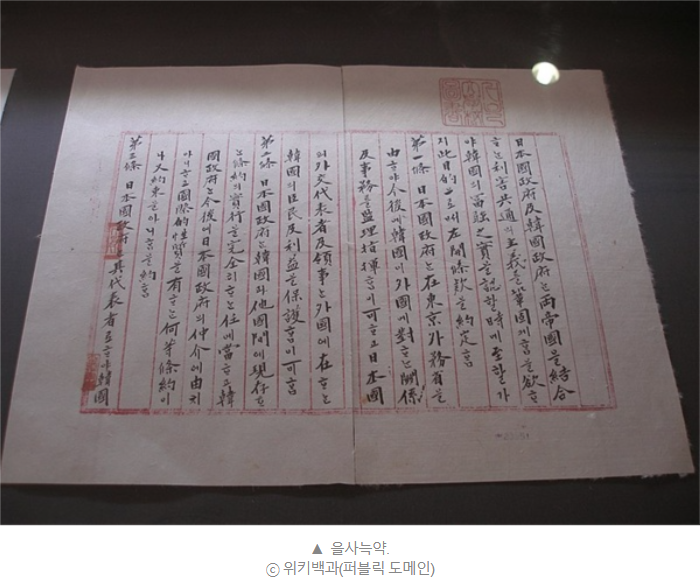 日本國政府及韓國政府ᄂᆞᆫ 兩帝國을 結合
ᄒᆞᄂᆞᆫ 利害共通의 主義를 鞏固케 ᄒᆞᆷ을 欲ᄒᆞ
야 韓國의 富强之實을 認ᄒᆞᆯ 時에 至ᄒᆞᆯ가
지 此目的으로써 左開條款을 約定ᄒᆞᆷ
第一條 日本國政府ᄂᆞᆫ 在東京外務省을
由ᄒᆞ야 今後에 韓國이 外國에 對ᄒᆞᄂᆞᆫ 關係
及事務를 監理指揮ᄒᆞᆷ이 可ᄒᆞ고 日本國
의 外交代表者及領事ᄂᆞᆫ 外國에 在ᄒᆞᄂᆞᆫ
韓國의 臣民及利益을 保護ᄒᆞᆷ이 可ᄒᆞᆷ
第二條 日本國政府ᄂᆞᆫ 韓國과 他國間에 現存ᄒᆞ
ᄂᆞᆫ 條約의 實行을 完全히 ᄒᆞᄂᆞᆫ 任에 當ᄒᆞ고 韓
國政府ᄂᆞᆫ 今後에 日本國政府의 仲介에 由치
아니ᄒᆞ고 國際的性質을 有ᄒᆞᄂᆞᆫ 何等條約이
나 又約束을 아니ᄒᆞᆷ을 約ᄒᆞᆷ
第三條 日本國政府ᄂᆞᆫ 其代表者로 ᄒᆞ야 韓國
▲ 을사늑약.
ⓒ 위키백과(퍼블릭 도메인)